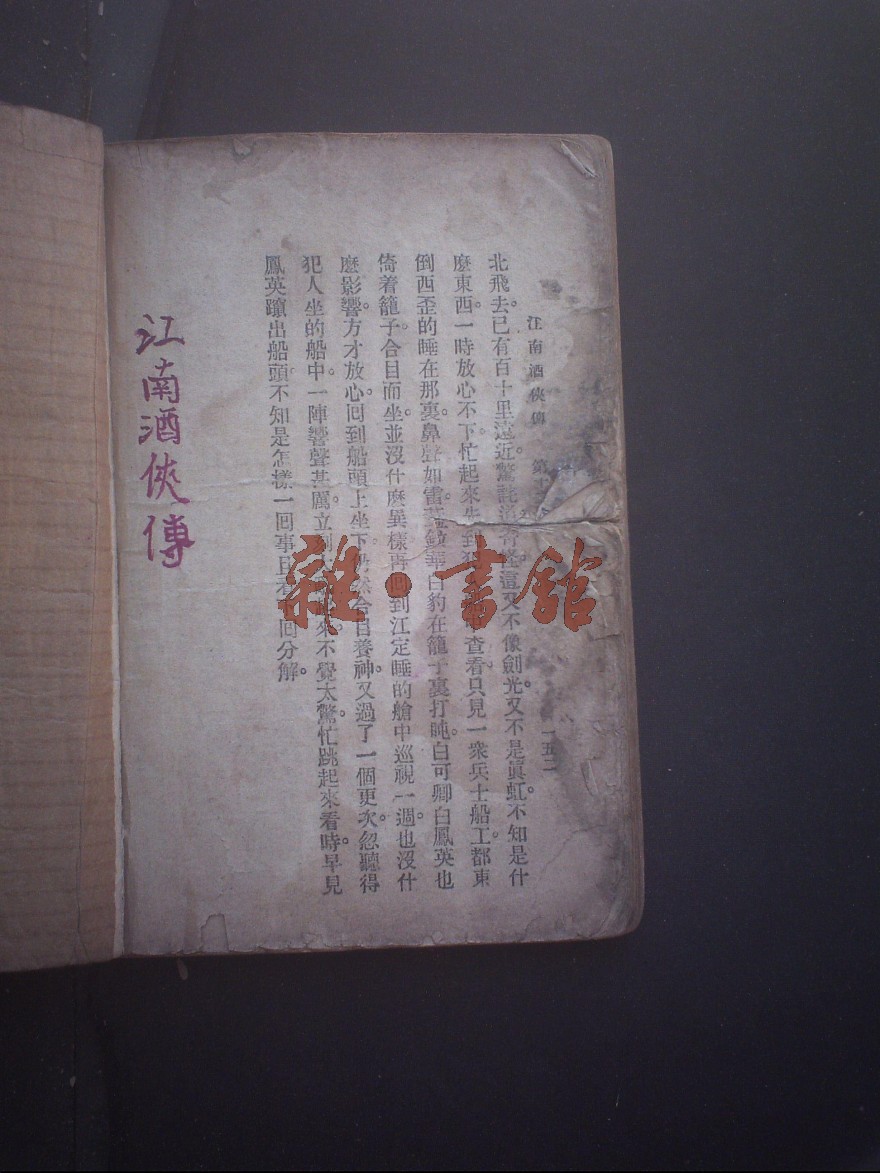 江南酒俠傳 第十 一五二
北飛去。已有百十里遠近。驚詫 這又不像劍光。又不是眞虹。不知是什
麼東西。一時放心不下。忙起來先到 查看。只見一衆兵士船工都東
倒西歪的睡在那裏。鼻聲如雷。 華白豹在籠子裏打盹。白可卿白鳳英也
倚着籠子。合目而坐。並沒什麼異樣。再回到江定睡的艙中巡視一週。也沒什
麼影響。方才放心。回到船頭上坐下。仍然合目養神。又過了一個更次。忽聽得
犯人坐的船中。一陣響聲甚厲。立刻 來。不覺太驚。忙跳起來看時。早見
鳳英躥出船頭。不知是怎樣一回事。且 回分解。
江南酒俠傳
雜·書館